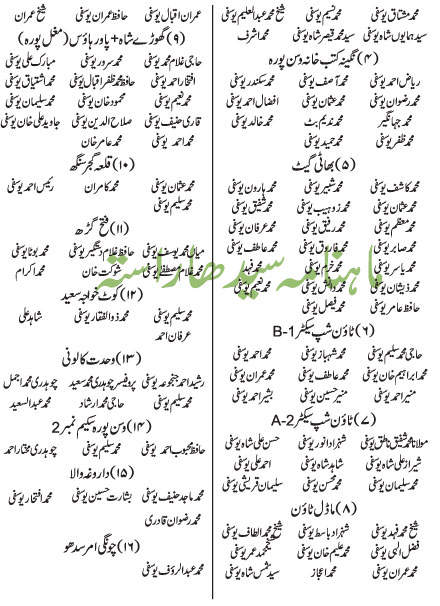 محمد مشتاق یوسفی محمد نسیم یوسفی شیخ محمد عبدالعلیم یوسفی
سید ہمایوں شاہ یوسفی سید محمد قیصر شاہ یوسفی محمد اشرف
(۴) نگینہ کتب خانہ وسن پورہ
ریاض احمد یوسفی محمد آصف یوسفی محمد سکندر یوسفی
محمد رضوان یوسفی محمد عثمان یوسفی افضال احمد یوسفی
محمد جہانگیر محمد ندیم بٹ محمد خالد یوسفی
محمد ظفر یوسفی محمد حمید یوسفی
(۵) بھاٹی گیٹ
محمد کاشف یوسفی محمد شبیر یوسفی محمد ہارون یوسفی
محمد عثمان یوسفی محمد زوہیب یوسفی محمد شفیق یوسفی
محمد معظم یوسفی محمد رفیق یوسفی محمد عرفان یوسفی
محمد صابر یوسفی محمد فاروق یوسفی محمد عاطف یوسفی
محمد یاسر یوسفی محمد خرم یوسفی محمد فہد یوسفی
محمد ذیشان یوسفی محمد وقاص یوسفی محمد نعیم یوسفی
حافظ عامر یوسفی محمد فیصل یوسفی
(۶) ٹاؤن شپ سیکٹر B-1
حاجی محمد سلیم یوسفی محمد شہباز یوسفی محمد احمد یوسفی
محمد ابراہیم خان یوسفی محمد عاطف یوسفی محمد عمران یوسفی
منیر احمد یوسفی منیر حسین یوسفی بشیر احمد یوسفی
(۷) ٹاؤن شپ سیکٹر A-2
مولانا محمد شفیق ناطق یوسفی شہزاد انور یوسفی حسن علی شاہ یوسفی
شیراز علی شاہ یوسفی شاہد شاہ یوسفی احمد علی یوسفی
محمد سلیمان یوسفی محمد محسن یوسفی سلیمان قریشی یوسفی
(۸) ماڈل ٹاؤن
شیخ محمد فہد یوسفی شہزاد باسط یوسفی شیخ محمد الطاف یوسفی
فضل الٰہی یوسفی محمد علیم خان یوسفی محمد عمر یوسفی
محمد عمران یوسفی محمد اعجاز سید شمس شاہ یوسفی
عمران اقبال یوسفی حافظ عمران یوسفی شیخ عمران
(۹) گھوڑے شاہ + پاور ہاؤس (مغل پورہ)
حاجی غلام محمد یوسفی محمد سرور یوسفی مبارک علی یوسفی
افتخار احمد یوسفی حافظ محمد ظفر اقبال یوسفی محمد اشتیاق یوسفی
محمد نعیم یوسفی محمود خان یوسفی محمد سلیمان یوسفی
قاری حنیف یوسفی صلاح الدین یوسفی جاوید علی خان یوسفی
محمد احمد یوسفی محمد عامر خان
(۱۰) قلعہ گجر سنگھ
محمد عثمان یوسفی محمد کامران رئیس احمد یوسفی
محمد سلیم یوسفی
(۱۱) فتح گڑھ
میاں محمد یوسف یوسفی حافظ غلام دستگیر یوسفی محمد بوٹا یوسفی
محمد غلام مصطفیٰ یوسفی شوکت خان محمد اکرام
(۱۲) کوٹ خواجہ سعید
محمد سلیم یوسفی محمد ذوالفقار یوسفی شاہد علی
عرفان احمد
(۱۳) وحدت کالونی
رشید احمد جنجوعہ یوسفی پروفیسر چوہدری محمد سعید چوہدری محمد اجمل
محمد سلیم یوسفی حاجی محمد ارشاد محمد عبدالسعید
(۱۴) وسن پورہ سکیم نمبر 2
حافظ محبوب احمد یوسفی محمد سلیم یوسفی چوہدری مختار احمد
(۱۵) داروغہ والا
محمد ماجد حنیف یوسفی بشارت حسین یوسفی محمد افتخار یوسفی
محمد رضوان قادری
(۱۶) چونگی امر سدھو
محمد عبدالرؤف یوسفی
ماہنامہ سیدھا راستہ